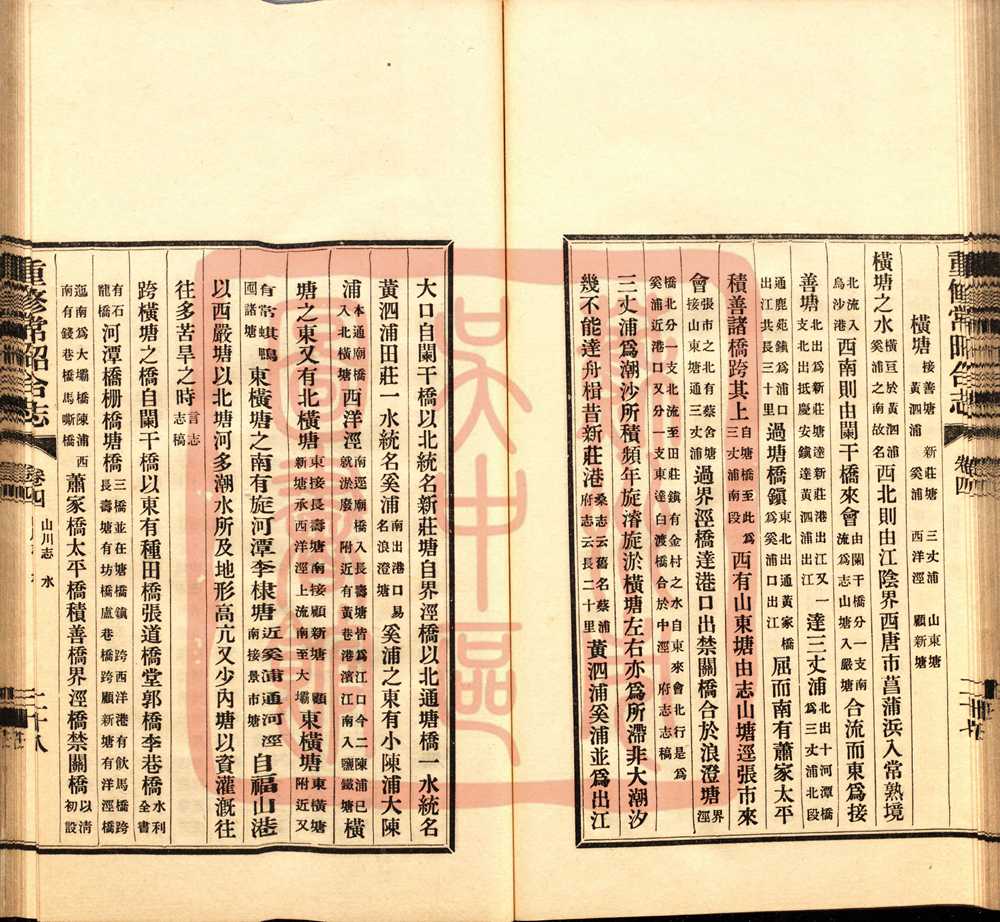 重修常昭合志 卷四
橫塘 接善塘 新莊塘 三丈浦 山東塘 黃泗浦 奚浦 西洋涇 顧新塘
橫塘之水 橫亘於黃泗浦奚浦之南故名 西北則由江陰界西唐市菖蒲浜入常熟境
北流入烏沙港 西南則由闌干橋來會 由闌干橋分一支南流為志山塘入嚴塘 合流而東為接
善塘 北出為新莊塘達新莊港出江又一支北出抵慶安鎮達黃泗浦出江 達三丈浦 北出十河潭橋為三丈浦北段
通鹿苑鎮為浦口出江共長三十里 過塘橋鎮 東北出通黃家橋為奚浦口出江 屈而南有蕭家太平
積善諸橋跨其上 自塘橋至此為三丈浦南段 西有山東塘由志山塘逕張市來
會 張市之北有蔡舍塘接山東塘通三丈浦 過界涇橋達港口出禁關橋合於浪澄塘 界涇
橋北分一支北流至田莊鎮有金村之水自東來會北行是為奚浦近港口又分一支東達白渡橋合於中涇 府志志稿
三丈浦為潮沙所積頻年旋濬旋淤橫塘左右亦為所滯非大潮汐
幾不能達舟楫昔新莊港 桑志云舊名蔡浦府志云長二十里 黃泗浦奚浦並為出江
大口自闌干橋以北統名新莊塘自界涇橋以北通塘橋一水統名
黃泗浦田莊一水統名奚浦 南出港口易名浪澄塘 奚浦之東有小陳浦大陳
浦 本通廟橋入北橫塘 西洋涇 南逕廟橋入長壽塘皆為江口今二陳浦已就淤廢附近有黃巷港濱江南入鹽鐵塘 橫
塘之東又有北橫塘 東接長壽塘南接顧新塘 顧新塘承西洋涇上流南至大壩 東橫塘 東橫塘附近又
有常蜞鴨圍諸塘 東橫塘之南有旋河潭李棣塘 近奚浦通河涇南接景市塘 自福山港
以西嚴塘以北塘河多潮水所及地形高亢又少內塘以資灌溉往
往多苦旱之時 言志志稿
跨橫塘之橋自闌干橋以東有種田橋張道橋堂郭橋李巷橋 水利全書
有石龍橋 河潭橋柵橋塘橋 三橋並在塘橋鎮 跨西洋港有飲馬橋跨長壽塘有坊橋盧巷橋跨顧新塘有洋涇橋
迤南為大壩橋陳浦西南有錢巷橋馬嘶橋 蕭家橋太平橋積善橋界涇橋禁關橋 以淸初設
重修常昭合志 卷四 山川志 水 二十八